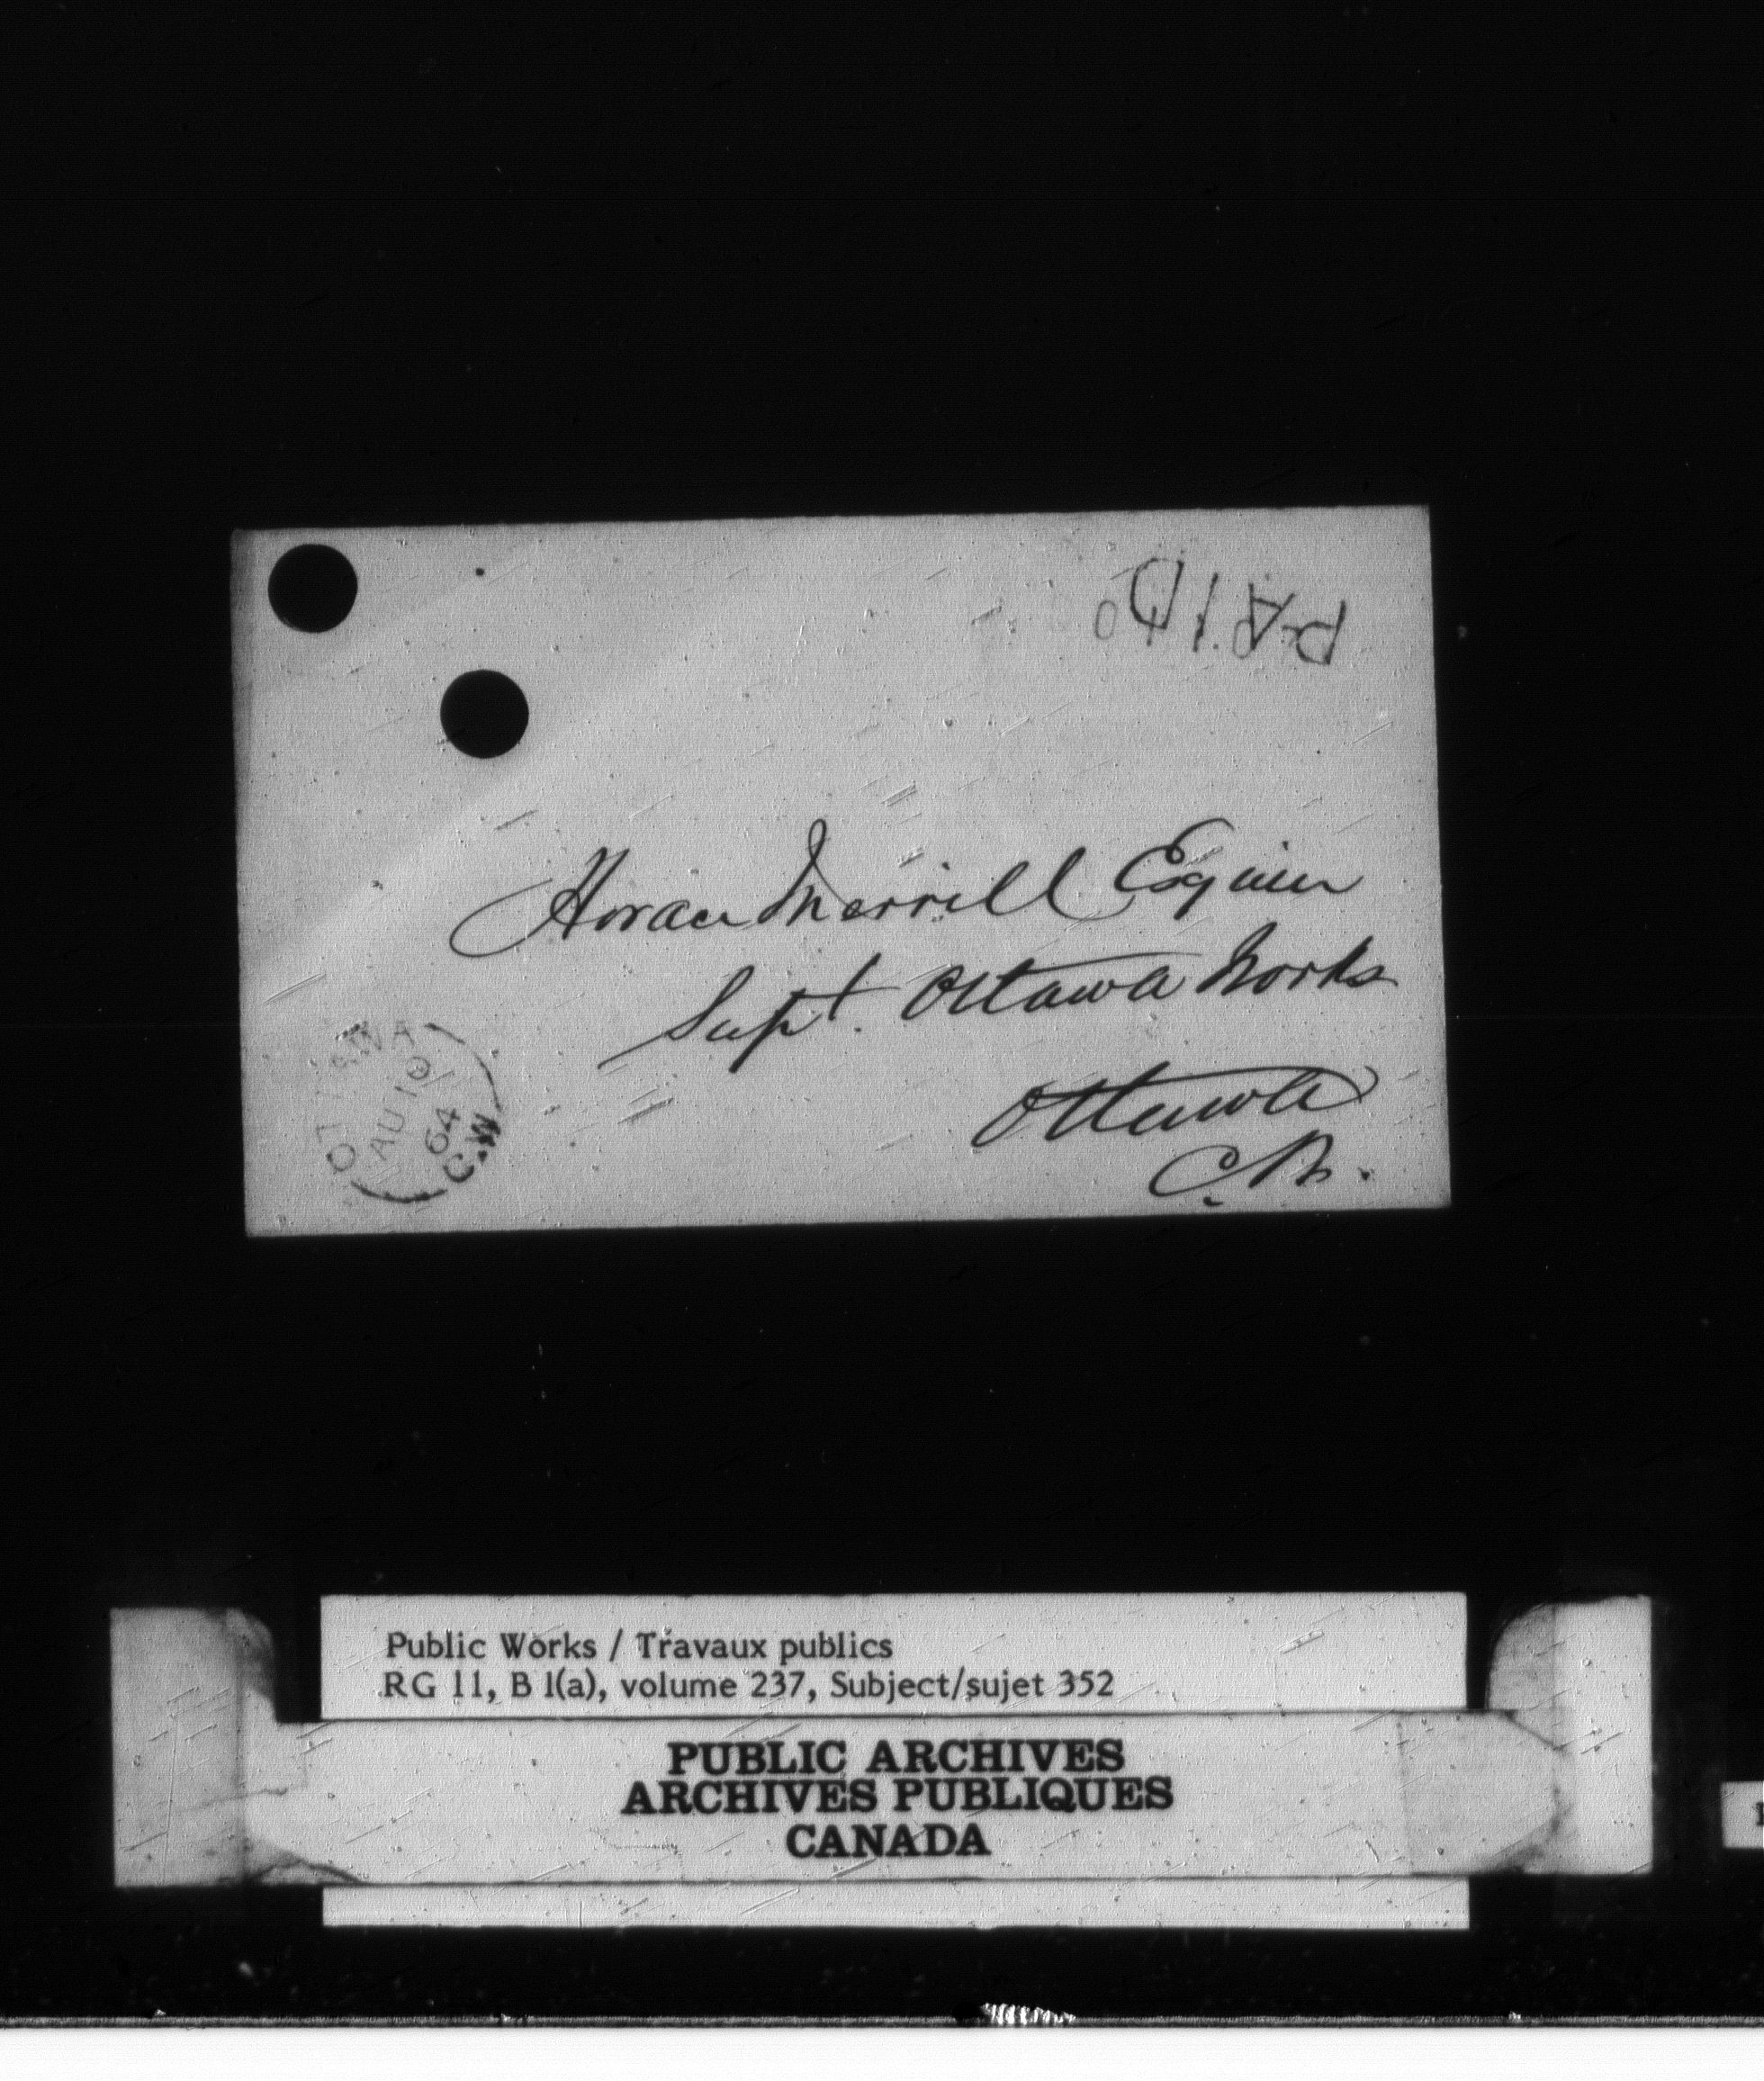 PAID
Horace Merrill Esquire
Supt. Ottawa Works
Ottawa
C.W.
OTTAWA
AU 10
64
C.W
Public Works / Travaux publics
RG 11, B 1(a), volume 237, Subject/sujet 352
PUBLIC ARCHIVES
ARCHIVES PUBLIQUES
CANADA